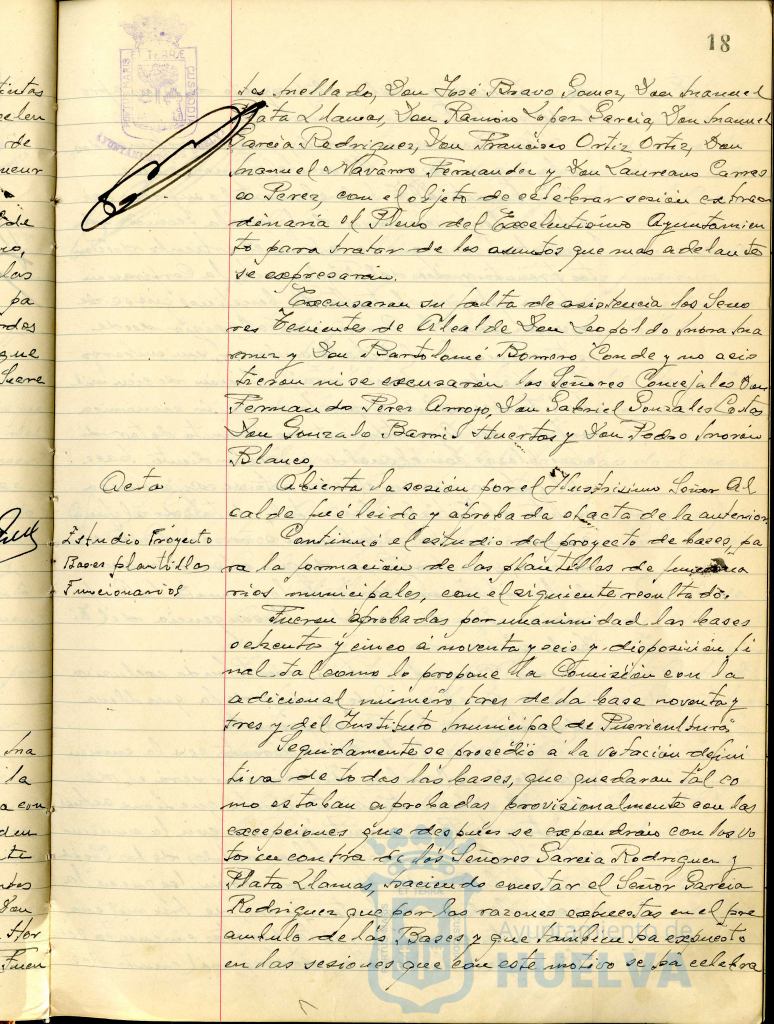 18
tos Mellado, Don José Bravo Gomez, Don Manuel
Plata Llamas, Don Ramiro Lopez Garcia, Don Manuel
Garcia Rodriguez, Don Francisco Ortiz Ortiz, Don
Manuel Navarro Fernandez y Don Laureano Carras
co Perez, con el objeto de celebrar sesión extraor
dinaria el Pleno del Excelentisimo Ayuntamien
to para tratar de los asuntos que mas adelante
se expresaran.
Excusaron su falta de asistencia los Seño
res Tenientes de Alcalde Don Leopoldo Mora
y Don Bartolomé Borrero Conde y no asis
tieron ni se excusarón los Señores Concejales Don
Fernando Perez Arroyo, Don Gabriel Gonzales
Don Gonzalo Barris Huertas y Don Pedro Morón
Blanco,
Acta
Abierta la sesión por el Ilustrisimo Señor Al
calde fué leida y aprobada el acta de la anterior
Estudio Proyecto
Bases plantillas
Funcionarios
Continuó el estudio del proyecto de bases, pa
ra la formación de las plantillas de funciona
rios municipales, con el siguiente resultado.
Fueron aprobadas por unanimidad las bases
ochenta y cinco a noventa y seis y disposición fi
nal tal como lo propone la Comisión con la
adicional número tres de la base noventa y
tres y del Instituto Municipal de Puericultura,
Seguidamente se procedió a la votación defini
tiva de todas las bases, que quedaran tal co
mo estaban aprobadas provisionalmente con las
excepciones que despues se expondrán con los vo
tos en contra de los Señores Garcia Rodriguez y
Plata Llamas, haciendo constar el Señor Garcia
Rodriguez que por las razones expuestas en el pre
ambulo de las Bases y que tambien ha expuesto
en las sesiones que con este motivo se ha celebra
Ayuntamiento de
HUELVA